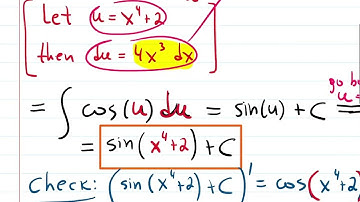 Let u = x⁴+2
then du = 4x³ dx
= ∫ cos(u) du = sin(u) + C =
= sin(x⁴+2) + C
Check: (sin(x⁴+2) + C)' = cos(x⁴+2)